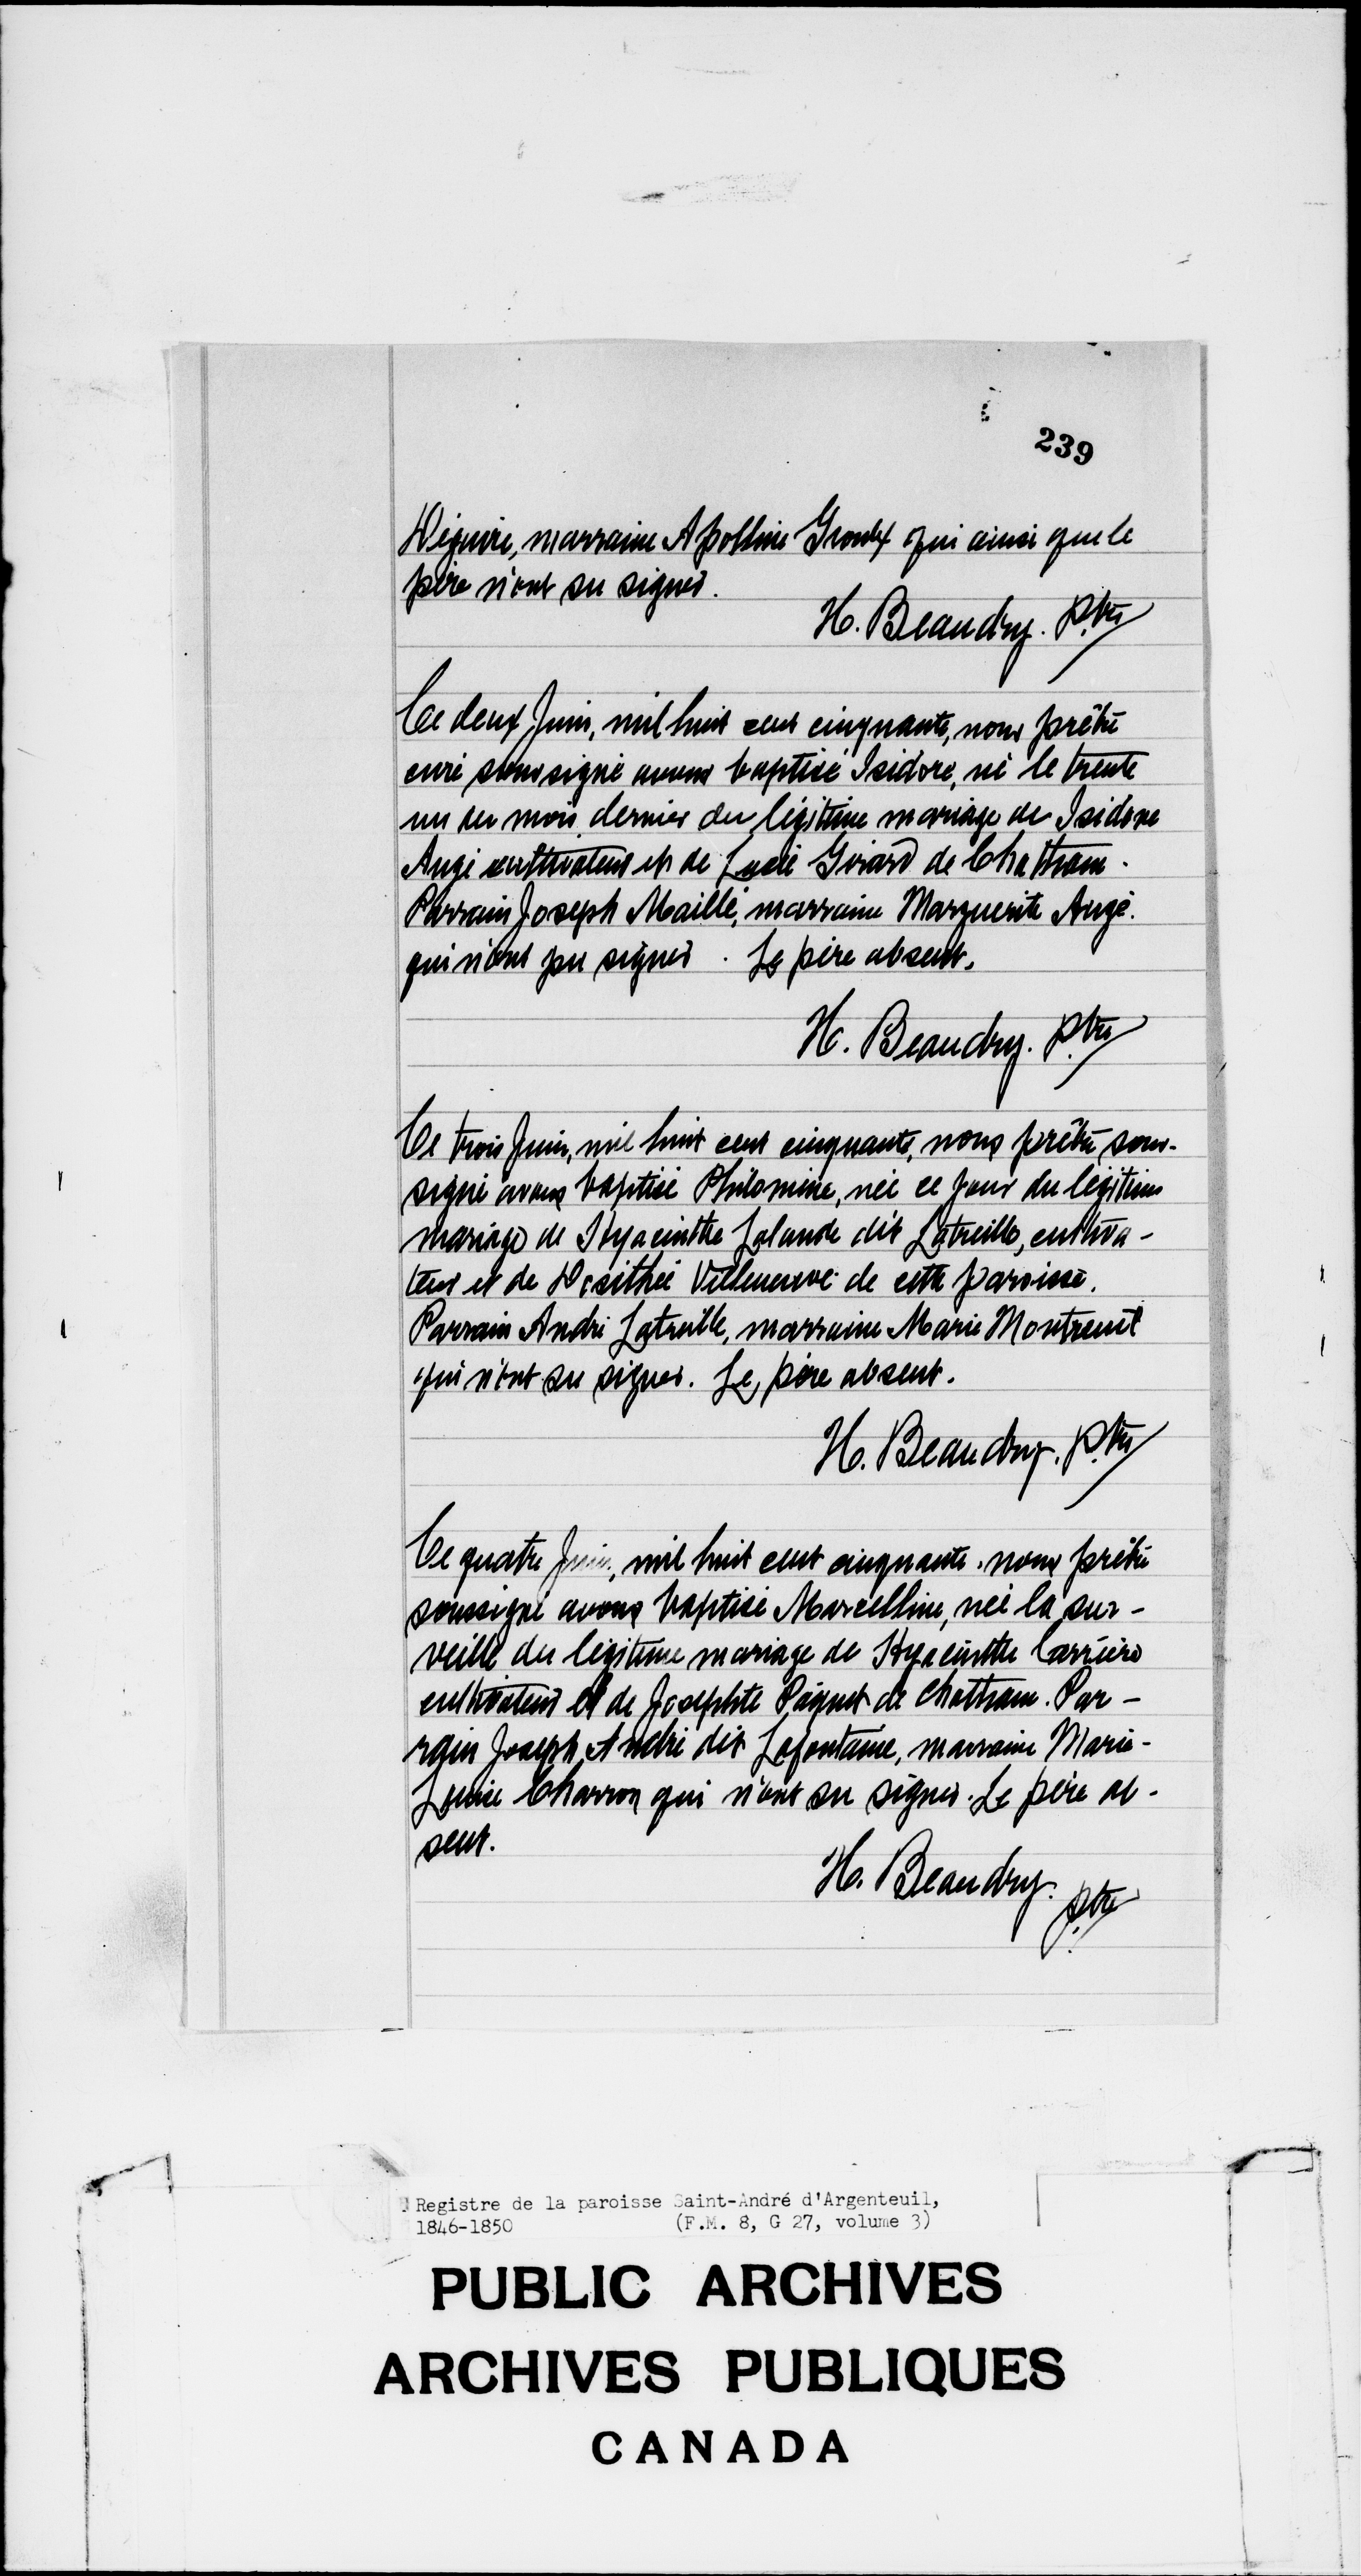 239
Déguire, marraine Apolline Groulx qui ainsi que le
père n'ont su signer.
H. Beaudry. Ptre
Ce deux Juin, mil huit cent cinquante, nous prêtre
curé soussigné avons baptisé Isidore, né le trente
un du mois dernier du légitime mariage de Isidore
Augé cultivateur et de Lucie Girard de Chatham.
Parrain Joseph Maillé, marraine Marguerite Augé.
qui n'ont pu signer. Le père absent.
H. Beaudry. Ptre
Ce trois Juin, mil huit cent cinquante, nous prêtre sous-
signé avons baptisé Philomène, née ce jour du légitime
mariage de Hyacinthe Lalande dit Latreille, cultiva-
teur et de Dosithée Villeneuve de cette paroisse.
Parrain André Latreille, marraine Marie Montreuil
qui n'ont su signer. Le père absent.
H. Beaudry. Ptre
Ce quatre Juin, mil huit cent cinquante, nous prêtre
soussigné avons baptisé Marcelline, née la sur-
veille du légitime mariage de Hyacinthe Carrière
cultivateur et de Josephte Páquet de Chatham. Par-
rain Joseph André dit Lafontaine, marraine Marie-
Louise Charron qui n'ont su signer. Le père ab-
sent.
H. Beaudry. ptre
Registre de la paroisse Saint-André d'Argenteuil,
1846-1850 (F.M. 8, G 27, volume 3)
PUBLIC ARCHIVES
ARCHIVES PUBLIQUES
CANADA